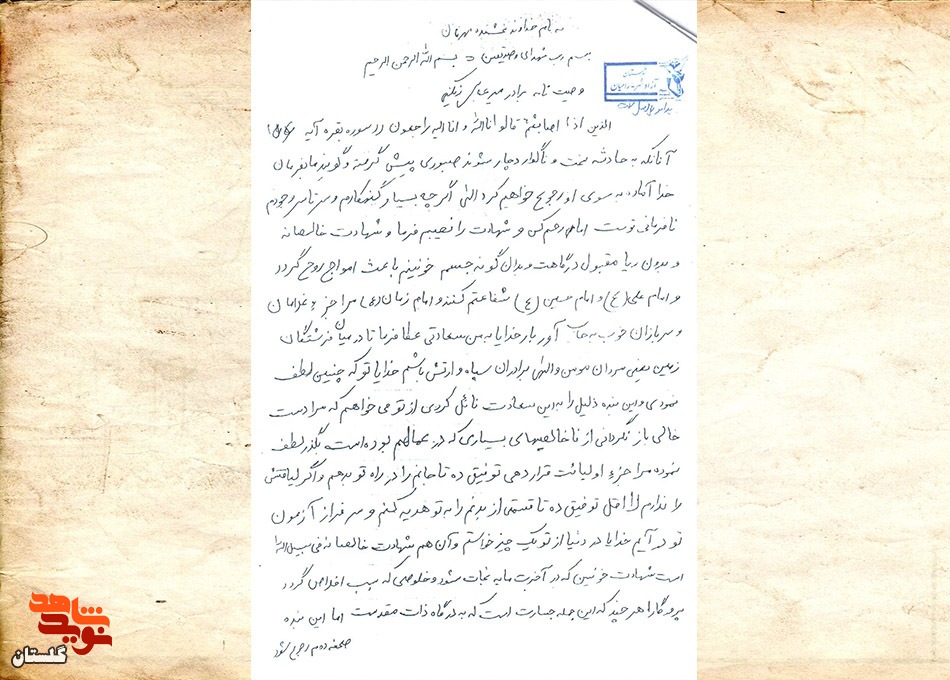 به نام خداوند بخشنده مهربان
بسم رب شهدای و صدیقین = بسم الله الرحمن الرحیم
وصیت نامه برادر
الذین اذا اصابتهم قالو انالله و اناالیه راجعون در سوره بقره آیه
آنانکه به حادثه سخت و ناگوار دچار شوند صبوری پیش گرفته و گویند ما بفرمان
خدا آماده به سوی او رجوع خواهیم کرد الهی اگر چه بسیار گنهکارم و سرتاسر وجودم
نافرمانی توست اما رحم کن و شهادت را نصیبم فرما و شهادت خالصانه
و بدون ریا مقبول درگاهت و بدان گونه جسم خونینم باعث امواج روح گردد
و امام علی (ع) و امام حسین (ع) شفاعتم کنند و امام زمان (عج) مرا جزء غلامان
و سربازان خوب به حساب آور بار خدایا به من سعادتی عطا فرما تا در میان فرشتگان
زمین یعنی مردان مومن والهی برادران سپاه و ارتش باشم خدایا تو که چنین لطف
نمودی و این بنده ذلیل را به این سعادت نائل کردی از تو می خواهم که مرا دست
خالی باز نگردانی از ناخالصیهای بسیاری که در اعمالم بوده است بگذر لطف
نموده مرا جزء اولیائت قرار دهی توفیق ده تا جانم را در راه تو بدهم و اگر لیاقتش
را ندارم لااقل توفیق ده تا قسمتی از بدنم را به تو هدیه کنم و سرفراز از آزمون
تو در آیم خدایا در دنیا از تو یک چیز خواستم و آن هم شهادت خالصانه فی سبیل الله
است شهادت خونین که در آخرت مایه نجات شود و خلوصی که سبب اخلاص گردد
پروردگارا هر چند که این جمله جسارت است که به درگاه ذات مقدست اما این بنده
صفحه دوم رجوع شود
نوید شاهد
گلستان